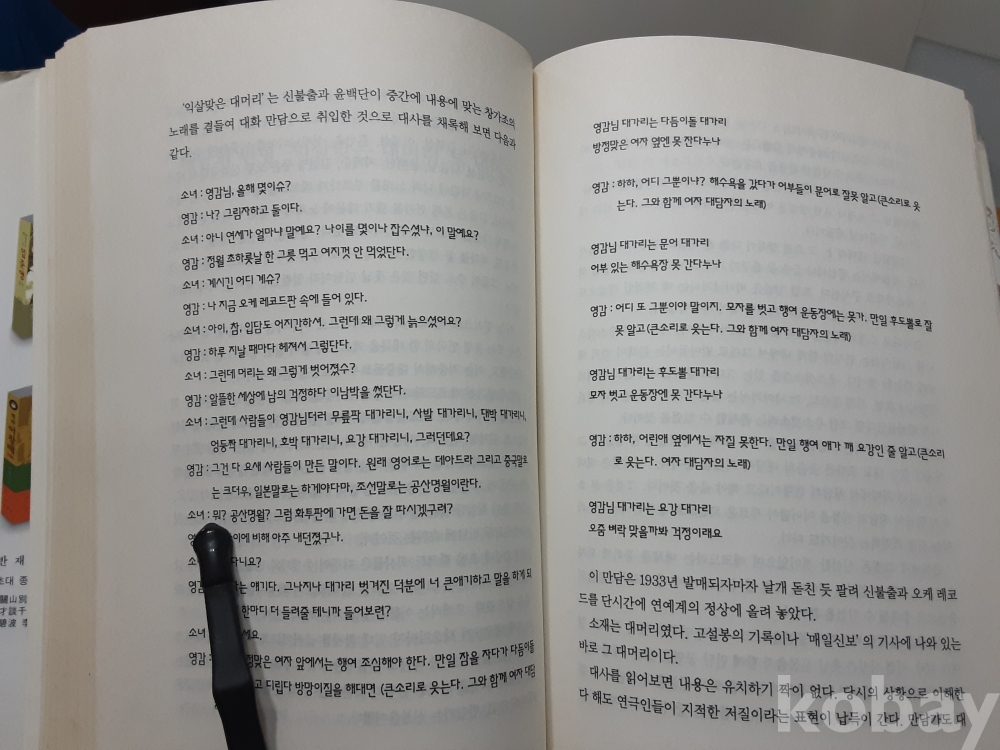 '익살맞은 대머리'는 신불출과 윤백단이 중간에 내용에 맞는 창가조의
노래를 곁들여 대화 만담으로 취입한 것으로 대사를 채록해 보면 다음과
같다.
소녀 : 영감님, 올해 몇이슈?
영감 : 나? 그림자하고 둘이다.
소녀 : 아니 연세가 얼마냐 말예요? 나이를 몇이나 잡수셨냐, 이 말예요?
영감 : 정월 초하룻날 한 그릇 먹고 여지껏 안 먹었단다.
소녀 : 계시긴 어디 계슈?
영감 : 나 지금 오케 레코드판 속에 들어 있다.
소녀 : 아이, 참, 입담도 어지간하셔. 그런데 왜 그렇게 늙으셨어요?
영감 : 하루 지날 때마다 헤져서 그렇단다.
소녀 : 그런데 머리는 왜 그렇게 벗어졌수?
영감 : 알뜰한 세상에 남의 걱정하다 이남박을 썼단다.
소녀 : 그런데 사람들이 영감님더러 무릎팍 대가리니, 사발 대가리니, 댄박 대가리니,
엉둥짝 대가리니, 호박 대가리니, 요강 대가리니, 그러던데요?
영감 : 그건 다 요새 사람들이 만든 말이다. 원래 영어로는 데아드라 그리고 중국말로
는 크더우, 일본말로는 하게야다마, 조선말로는 공산명월이란다.
소녀 : 뭐? 공산명월? 그럼 화투판에 가면 돈을 잘 따시겠구려?
영 이에 비해 아주 내던졌구나.
소 다니요?
영감 는 얘기다. 그나지나 대가리 벗겨진 덕분에 너 큰애기하고 말을 하게 되
한마디 더 들려줄 테니까 들어보련?
소녀 세요.
영감 : 정맞은 여자 앞에서는 행여 조심해야 한다. 만일 잠을 자다가 다듬이돌
고 디립다 방망이질을 해대면 (큰소리로 웃는다. 그와 함께 여자 대담
영감님 대가리는 다듬이돌 대가리
방정맞은 여자 옆엔 못 잔다누나
영감 : 하하, 어디 그뿐이냐? 해수욕을 갔다가 어부들이 문어로 잘못 알고(큰소리로 웃
는다. 그와 함께 여자 대담자의 노래)
영감님 대가리는 문어 대가리
어부 있는 해수욕장 못 간다누나
영감 : 어디 또 그뿐이야 말이지. 모자를 벗고 행여 운동장에는 못가. 만일 후도뽈로 잘
못 알고 (큰소리로 웃는다. 그와 함께 여자 대담자의 노래)
영감님 대가리는 후도뽈 대가리
모자 벗고 운동장엔 못 간다누나
영감 : 하하, 어린애 옆에서는 자질 못한다. 만일 행여 애가 깨 요강인 줄 알고(큰소리
로 웃는다. 여자 대담자의 노래)
영감님 대가리는 요강 대가리
오줌 벼락 맞을까봐 걱정이래요
이 만담은 1933년 발매되자마자 날개 돋친 듯 팔려 신불출과 오케 레코
드를 단시간에 연예계의 정상에 올려 놓았다.
소재는 대머리였다. 고설봉의 기록이나 '매일신보'의 기사에 나와 있는
바로 그 대머리이다.
대사를 읽어보면 내용은 유치하기 짝이 없다. 당시의 상황으로 이해한
다 해도 연극인들이 지적한 저질이라는 표현이 납득이 간다. 만담가도 대
한 재
초대 종
關山別
才談千
kobay